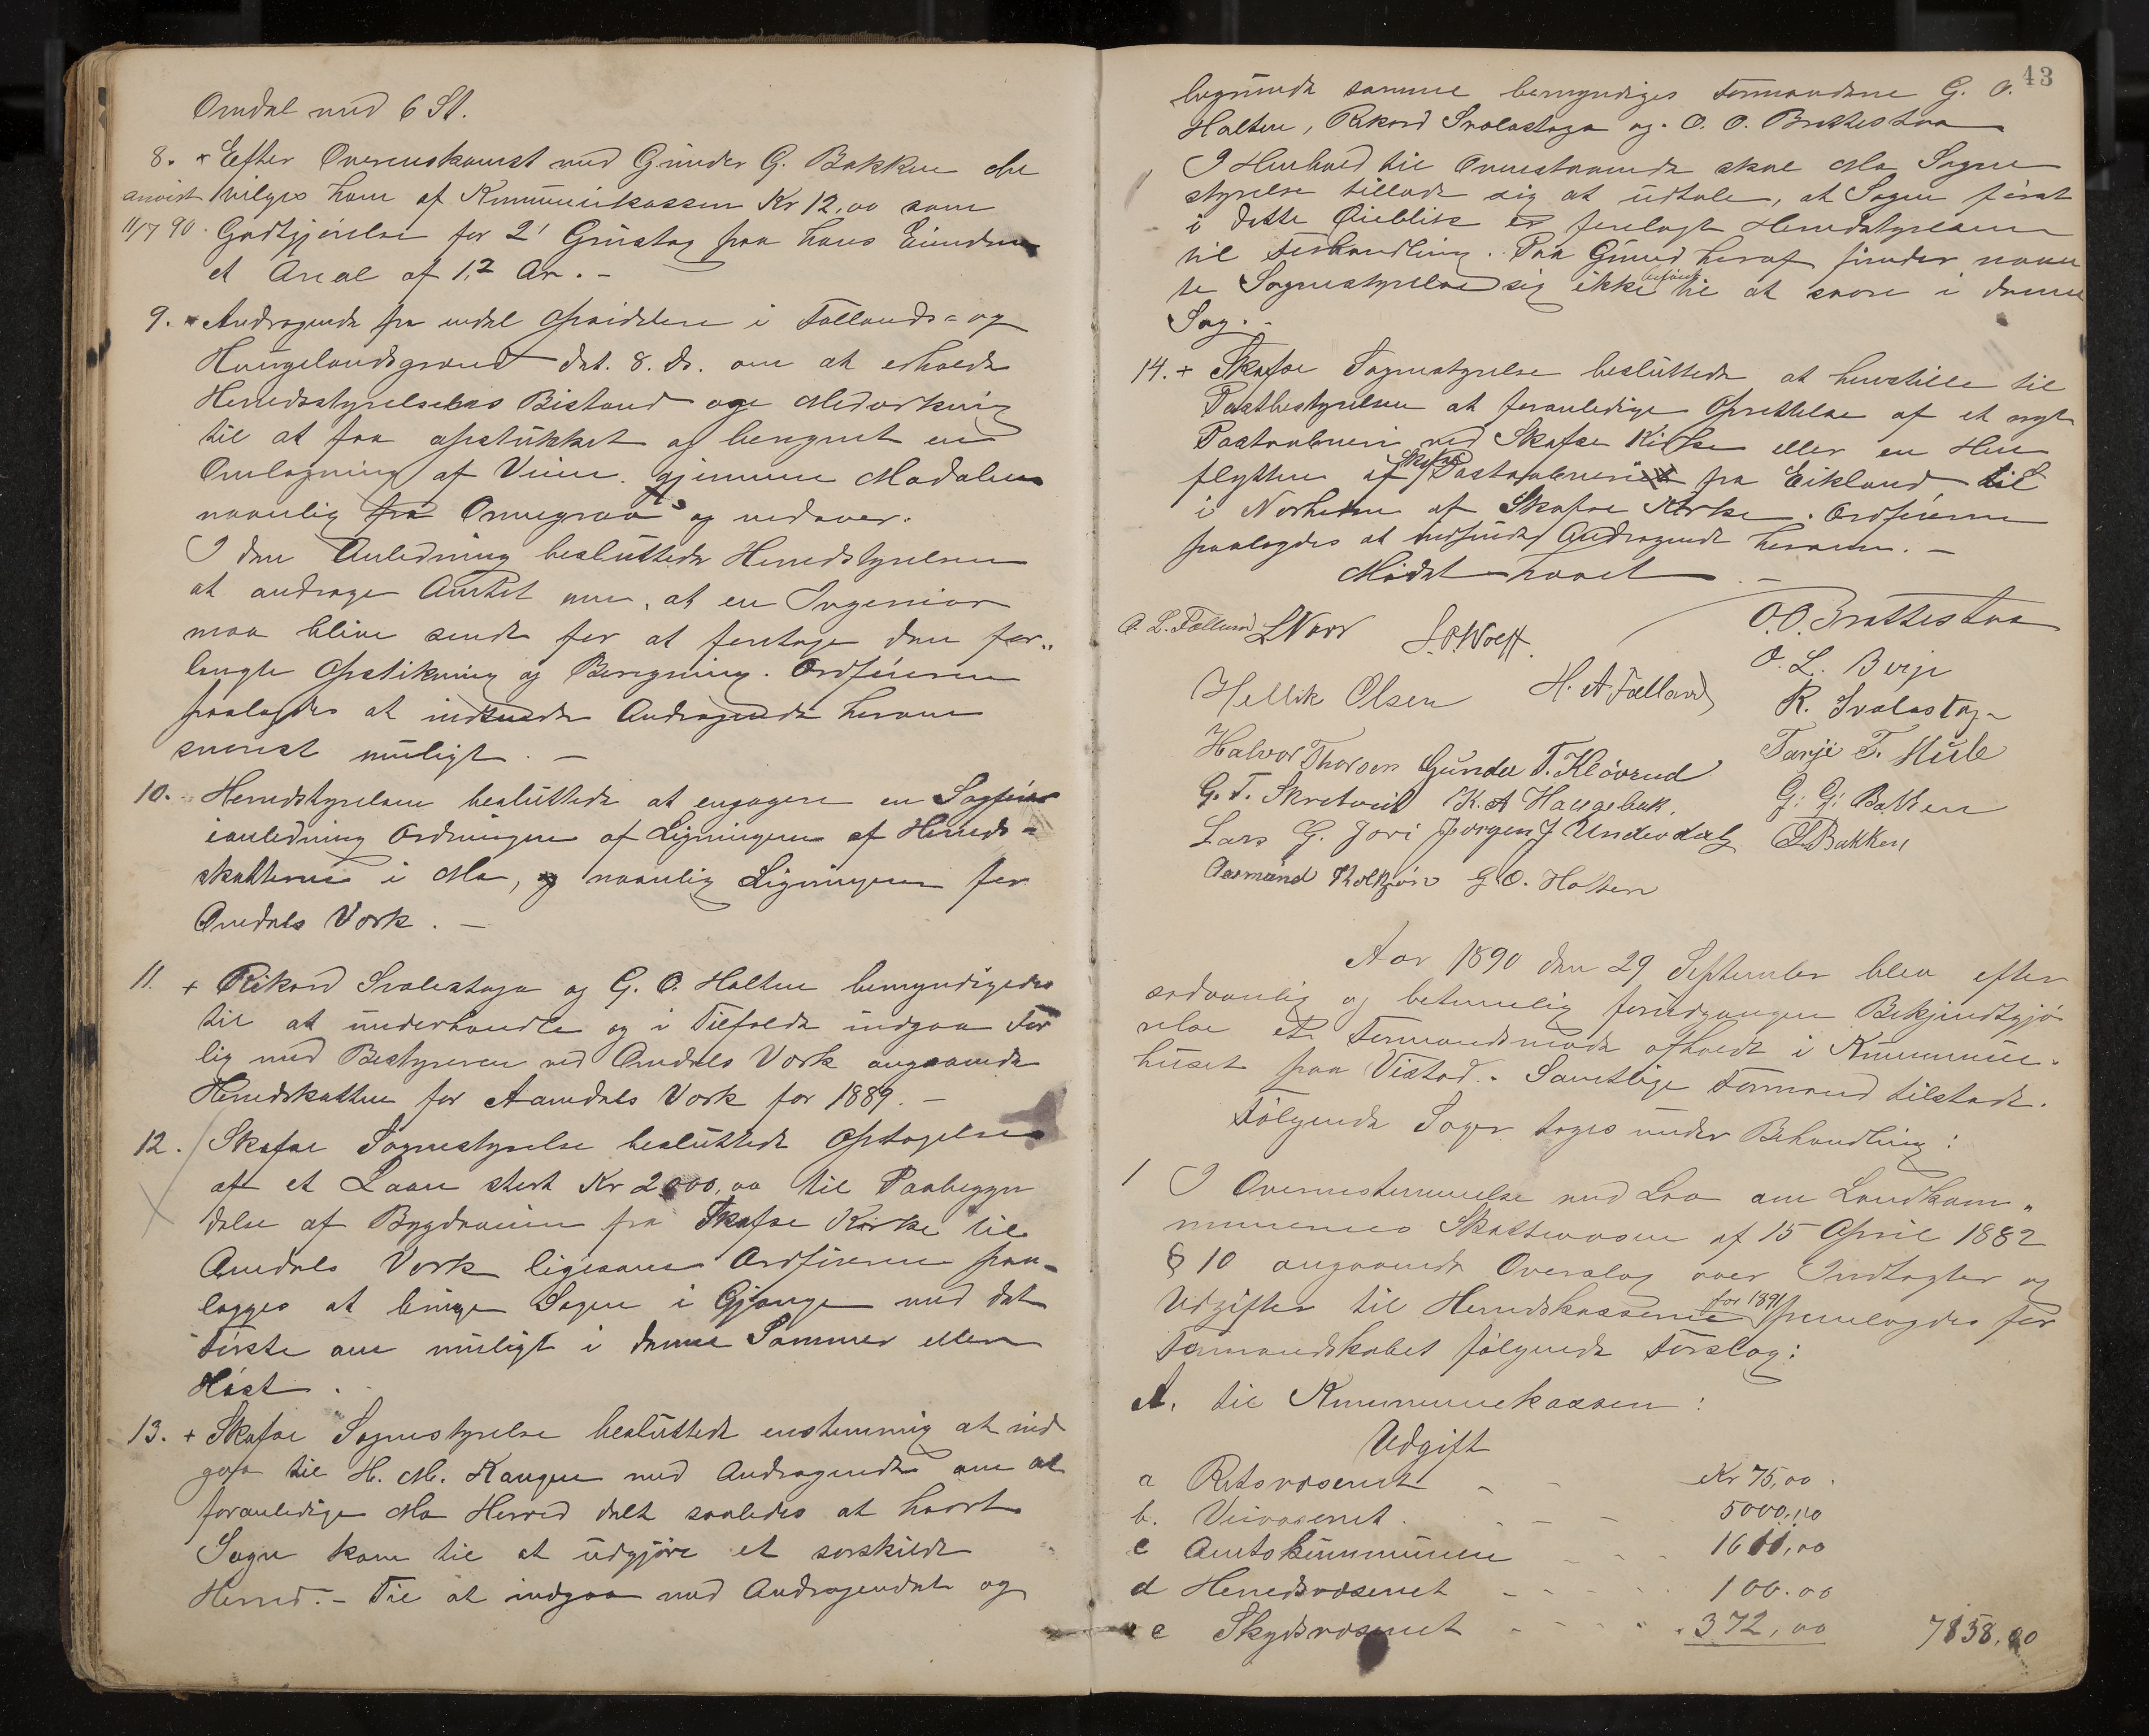 Omdal med 6 St.
8. × Efter Overenskomst med Gunder G. Bakken be
anvist vilges ham af Kommunekassen Kr 12,00 som
11/7 90. Godtgjørelse for 2' Grustag paa hans Eiendom
et Areal af 1,2 Ar. –
9. × Andragende fra endel Opsiddere i Fallands- og
Haugelandsgrend dat. 8. ds. om at erholde
Herredsstyrelsens Bistand og Medvirkning
til at faa opstukket og beregnet en
Omlægning af Veien gjennem Modalen
navnlig fra Onnegraa og nedover.
I den Anledning besluttede Herredstyrelsen
at andrage Amtet om, at en Ingeniør
maa blive sendt for at foretage den for„
langte Opstikning og Beregning. Ordføreren
paalagdes at indsende Andragende herom
snarest muligt. –
10. Herredstyrelsen besluttede at engagere en Sagfører
ianledning Ordningen af Ligningen af Herreds-
skatterne i Mo, og navnlig Ligningen for
Omdals Verk. –
11. + Rikard Svalastoga og G. O. Holten bemyndigedes
til at underhandle og i Tilfælde indgaa For
lig med Bestyreren ved Omdals Verk angaaende
Herredskatten for Aamdals Verk for 1889. –
12. Skafse Sognestyrelse besluttede Optagelse
af et Laan stort Kr 2000,00 til Paabegyn
delse af Bygdeveien fra Skafse Kirke til
Omdals Verk ligesom Ordføreren paa-
lægges at bringe Sagen i Gjænge med det
Første om muligt i denne Sommer eller
Høst.
13. + Skafse Sognestyrelse besluttede enstemmig at ind
gaa til H. M. Kongen med Andragende om at
foranledige Mo Herred delt saaledes at hvert
Sogn kom til at udgjøre et særskildt
Herred. – Til at indgaa med Andragendet og
43
begrunde samme bemyndiges Formændene G. O.
Holten, Rikard Svalastoga og O. O. Brattestaa
I Henhold til Ovenstaaende skal Mo Sogne
styrelse tillade sig at udtale, at Sagen først
i dette Øieblik er forelagt Herredstyrelsen
til Forhandling. Paa Grund heraf finder nævn
te Sognestyrelse sig ikke beføiet til at svare i denne
Sag. –
14. + Skafse Sognestyrelse besluttede at henstille til
Postbestyrelsen at foranledige Oprettelse af et nyt
Postaabneri ved Skafse Kirke eller en Hen
flytten af Skafse Postaabneri fra Eikland til
i Nærheden af Skafse Kirke. Ordføreren
paalagdes at indsende Andragende herom. –
Mødet hævet. –
O. L. Falland LNorr S.O.Wolff. O.O. Brattestaa
O. L. Berge
Hellik Olsen H. A Falland R. Svalastoga
Halvor Thorsen Gunder T. Kløvrud Tarje T. Mule
G. T. Skretveit K. A Haugebak. G. G. Bakken
Lars G. Jori Jørgen J Underdal O Bakken
Aasmund G O. Holten
Aar 1890 den 29 September blev efter
sædvanlig og betimelig forudgangen Bekjendtgjø
relse et Formandsmøde afholdt i Kommune-
huset paa Vistad. Samtlige Formænd tilstede.
Følgende Sager toges under Behandling:
1 I Overensstemmelse med Lov om Landkom„
munernes Skattevæsen af 15 April 1882
§ 10 angaaende Overslag over Indtægter og
Udgifter til Herredskasserne for 1891 fremlagdes for
Formandskabet følgende Forslag:
A. til Kommunekassen:
Udgift
a Retsvæsenet – – Kr 75,00.
b. Veivæsenet. – – – 5000,00
c Amtskommunen – – – 1611,00
d Herredsvæsenet – – – – 100.00
e Skydsvæsenet – – – – 372,00 7858,00